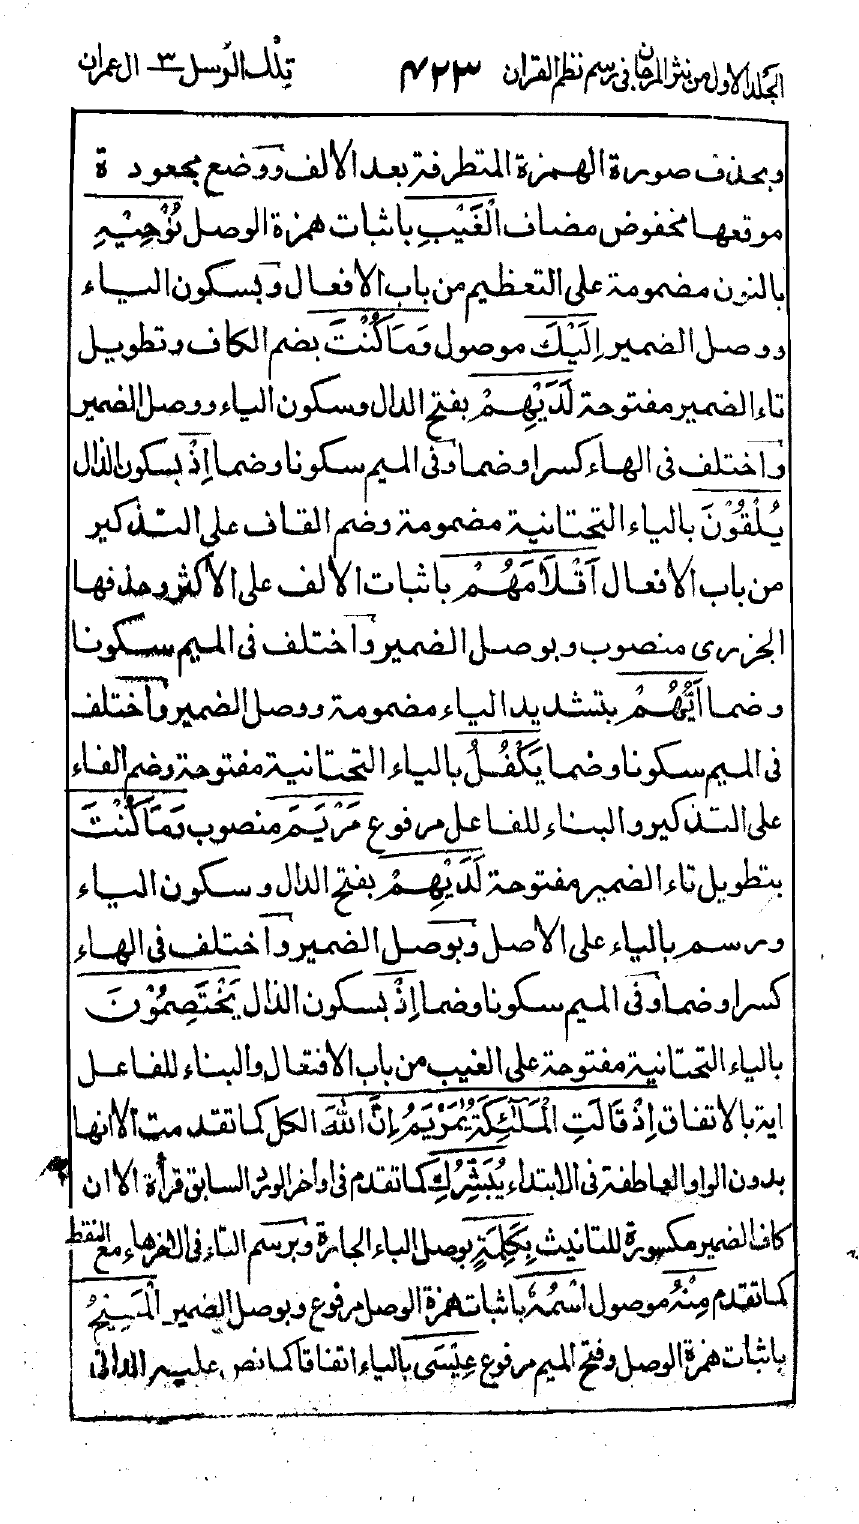 الجلد الاول من نثر المرجان فى رسم نظم القران ۴۲۳ تِلْكَ الرُّسل ۳ ال عمران
وبحذف صورة الهمزة المتطرفة بعد الالف ووضع مجعودة
موقعها مخفوض مضاف الْغَيْبِ باثبات همزة الوصل نُوْحِيْهِ
بالنون مضمومة على التعظيم من باب الافعال وبسكون الياء
ووصل الضمير اِلَيْكَ موصول وَمَا كُنْتَ بضم الكاف وتطويل
تاء الضمير مفتوحة لَدَيْهِمْ بفتح الدال وسكون الياء ووصل الضمير
واختلف فى الهاء كسرا وضما وفى الميم سكونا وضما اِذْ بسكون الذال
يُلْقُوْنَ بالياء التحتانية مضمومة وضم القاف على التذكير
من باب الافعال اَقْلَامَهُمْ باثبات الالف على الاكثر وحذفها
الجزرى منصوب وبوصل الضمير واختلف فى الميم سكونا
وضما اَيُّهُمْ بتشديد الياء مضمومة ووصل الضمير واختلف
فى الميم سكونا وضما يَكْفُلُ بالياء التحتانية مفتوحة وضم الفاء
على التذكير والبناء للفاعل مرفوع مَرْيَمَ منصوب وَمَا كُنْتَ
بتطويل تاء الضمير مفتوحة لَدَيْهِمْ بفتح الدال وسكون الياء
ورسم بالياء على الاصل وبوصل الضمير واختلف فى الهاء
كسرا وضما وفى الميم سكونا وضما اِذْ بسكون الذال يَخْتَصِمُوْنَ
بالياء التحتانية مفتوحة على الغيب من باب الافتعال والبناء للفاعل
اية بالاتفاق اِذْ قَالَتِ الْمَلٰٓئِكَةُ يٰمَرْيَمُ اِنَّ اللّٰهَ الكل كما تقدمت الا انها
بدون الواو العاطفة فى الابتداء يُبَشِّرُكِ كما تقدم فى اواخر الورد السابق قرأة الا ان
كاف الضمير مكسورة للتانيث بِكَلِمَةٍ بوصل الباء الجارة وبرسم التاء فى الاخر هاء مع النقط
كما تقدم مِنْهُ موصول اسْمُهُ باثبات همزة الوصل مرفوع وبوصل الضمير الْمَسِيْحُ
باثبات همزة الوصل وفتح الميم مرفوع عِيْسَى بالياء اتفاقا كما نص عليه الدانى